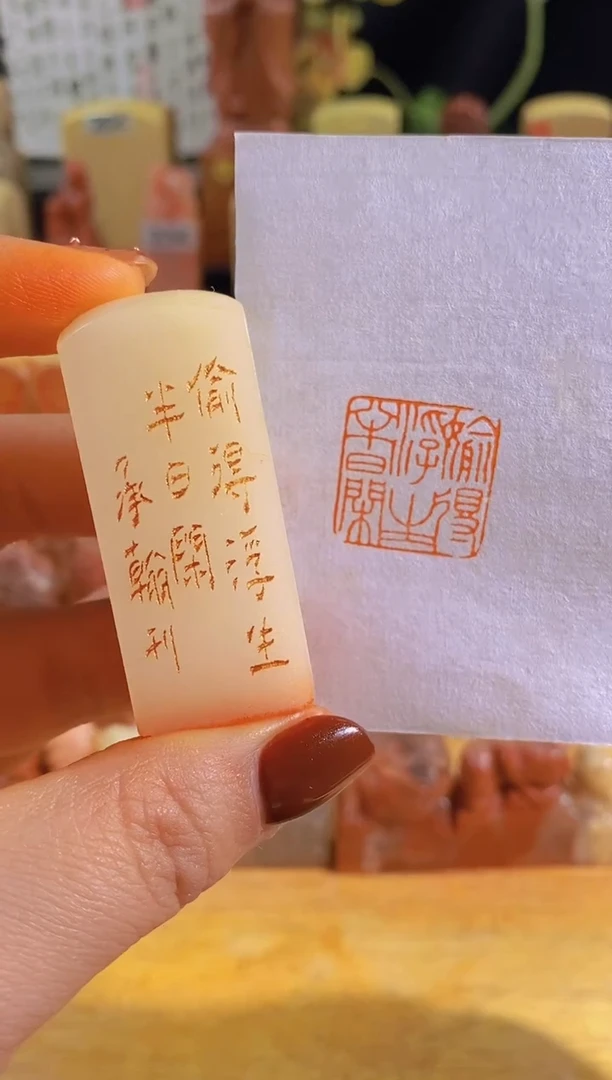 偷得浮生
半日閑
承翰刊
偷得
浮生
半日閑